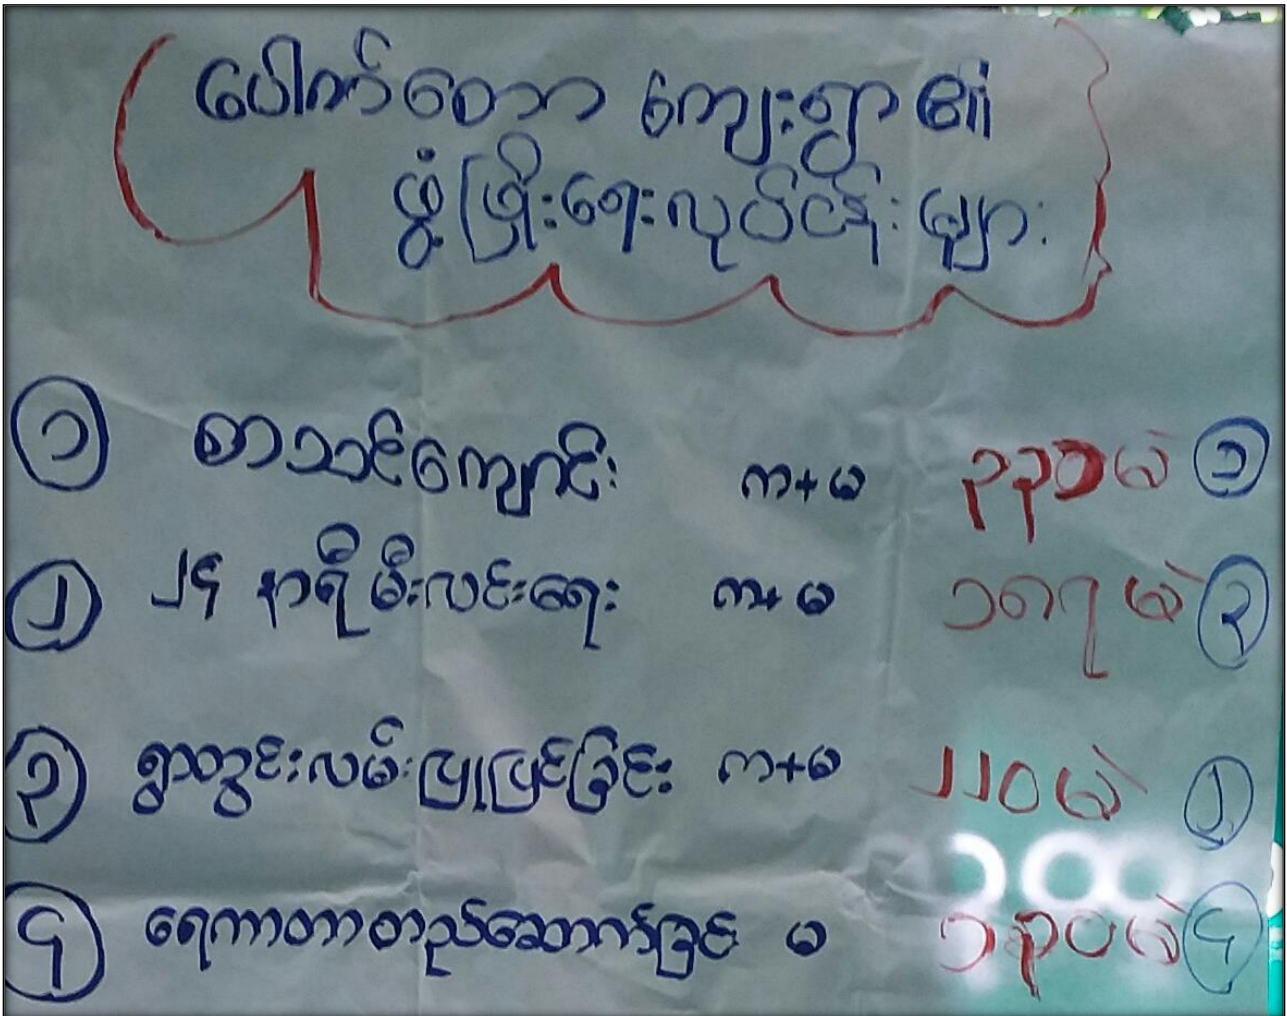 ပေါက်တော ကျေးရွာ၏
ဖွံ့ဖြိုးရေးလုပ်ငန်းများ
၁ စာသင်ကျောင်း က+မ ၃၃၁ မဲ ၁
၂ ၂၄ နာရီ မီးလင်းရေး က+မ ၁၈၇ မဲ ၃
၃ ရွာတွင်းလမ်းပြုပြင်ခြင်း က+မ ၂၂၀ မဲ ၂
၄ ရေကာတာတည်ဆောက်ခြင်း မ ၁၃၀ မဲ ၄